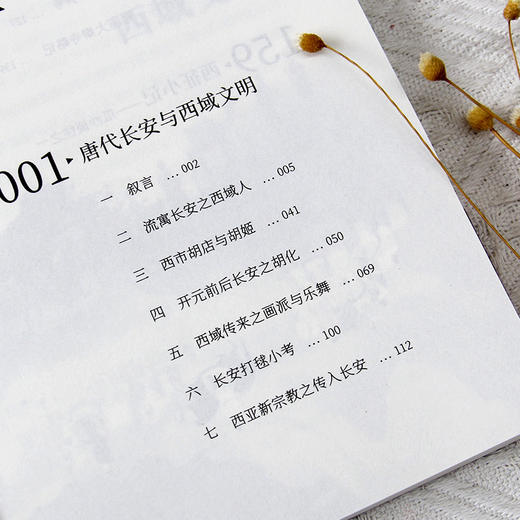 001▸唐代长安与西域文明
一 叙言 …002
二 流寓长安之西域人 …005
三 西市胡店与胡姬 …041
四 开元前后长安之胡化 …050
五 西域传来之画派与乐舞 …069
六 长安打毬小考 …100
七 西亚新宗教之传入长安 …112